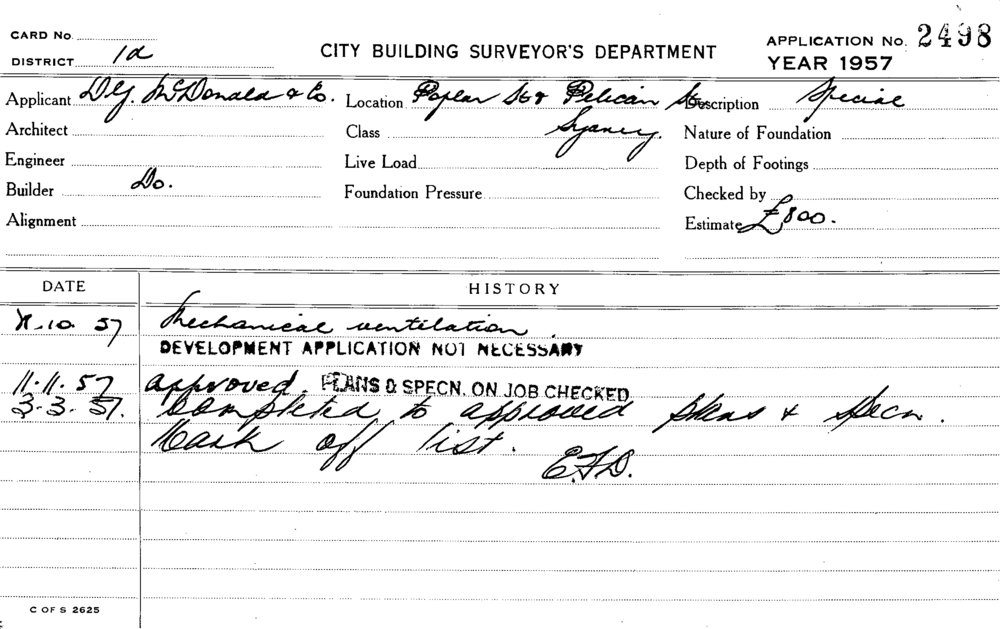 CARD No.
DISTRICT 1a
CITY BUILDING SURVEYOR'S DEPARTMENT
APPLICATION No. 2498
YEAR 1957
Applicant D.G. McDonald & Co.
Location Poplar St & Pelican St
Description Special
Architect
Class Sydney.
Nature of Foundation
Engineer
Live Load
Depth of Footings
Builder Do.
Foundation Pressure
Checked by
Alignment
Estimate £800.
DATE
HISTORY
10. 57 Mechanical ventilation.
DEVELOPMENT APPLICATION NOT NECESSARY
11.11.57 approved. PLANS & SPECN. ON JOB CHECKED
3.3.57. Completed to approved plans & specn.
Mark off list.
E.F.D.
C OF S 2625